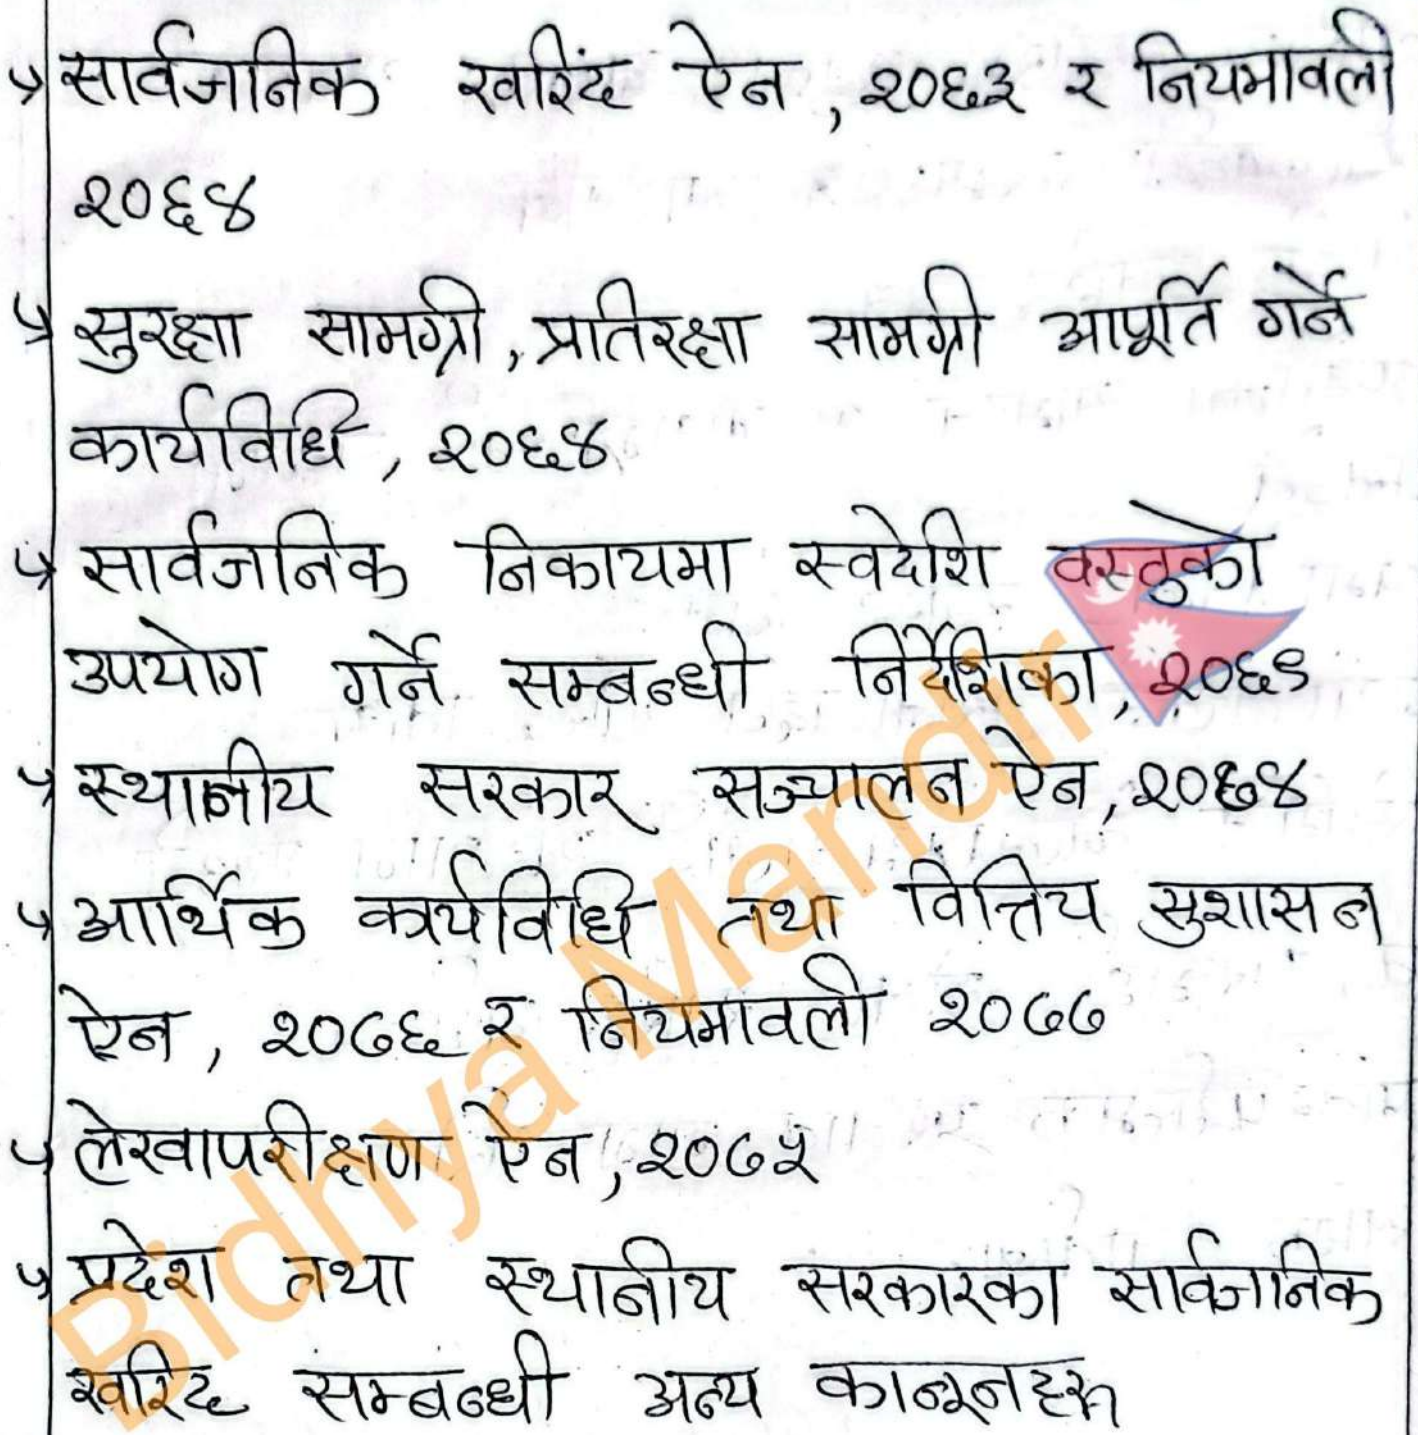 सार्वजानिक खरिद ऐन, २०६३ र नियमावली
२०६४
सुरक्षा सामग्री, प्रतिरक्षा सामग्री आपूर्ति गर्ने
कार्यविधि, २०६४
सार्वजानिक निकायमा स्वदेशि वस्तुको
उपयोग गर्ने सम्बन्धी निर्देशिका, २०६९
स्थानीय सरकार सञ्चालन ऐन, २०७४
आर्थिक कार्यविधि तथा वित्तिय सुशासन
ऐन, २०७६ र नियमावली २०७७
लेखापरीक्षण ऐन, २०७५
प्रदेश तथा स्थानीय सरकारका सार्वजानिक
खरिद सम्बन्धी अन्य कानूनहरू
Bidhya Mandir